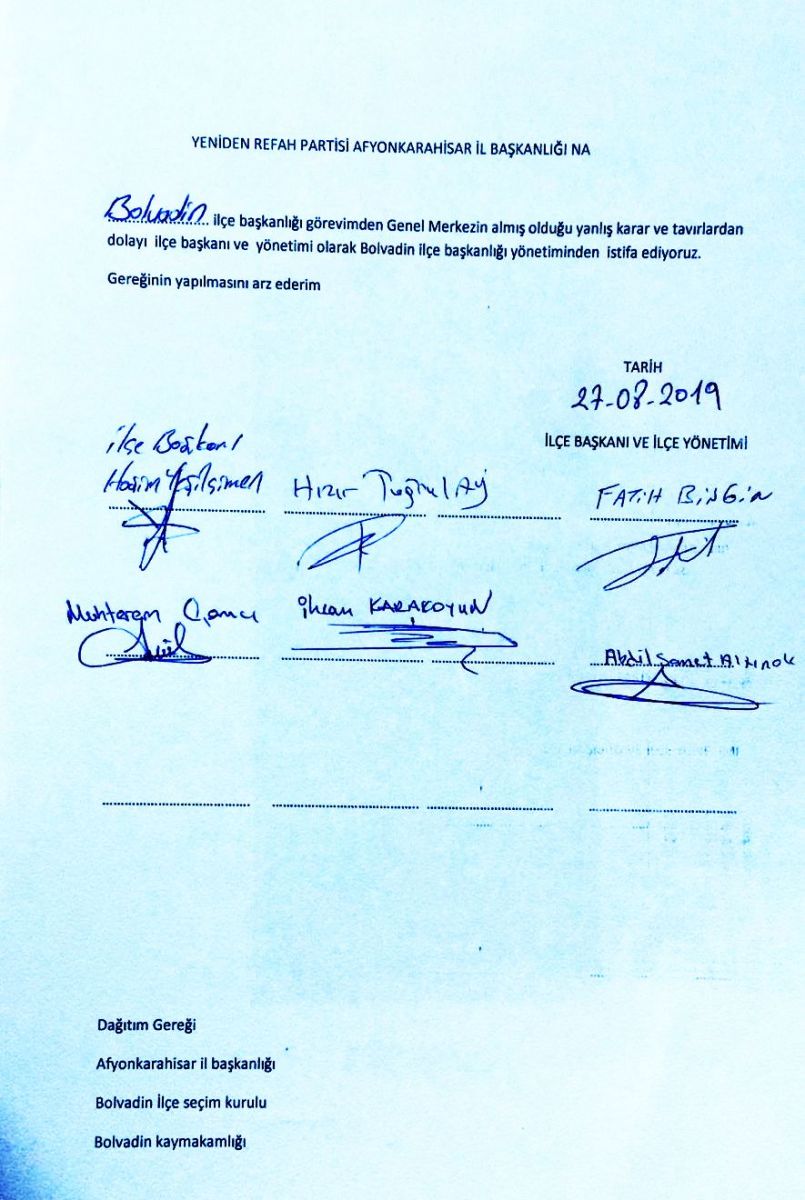 YENİDEN REFAH PARTİSİ AFYONKARAHİSAR İL BAŞKANLIĞI NA
Bolvadin ilçe başkanlığı görevimden Genel Merkezin almış olduğu yanlış karar ve tavırlardan
dolayı ilçe başkanı ve yönetimi olarak Bolvadin ilçe başkanlığı yönetiminden istifa ediyoruz.
Gereğinin yapılmasını arz ederim
TARİH
27-08-2019
İLÇE BAŞKANI VE İLÇE YÖNETİMİ
ilçe Başkanı
Haşim Yeşilçimen Hızır Tuğrul Ay FATİH BİLGİN
Muhterem ihsan KARAKOYUN
Abdil Samet Altınok
Dağıtım Gereği
Afyonkarahisar il başkanlığı
Bolvadin İlçe seçim kurulu
Bolvadin kaymakamlığı